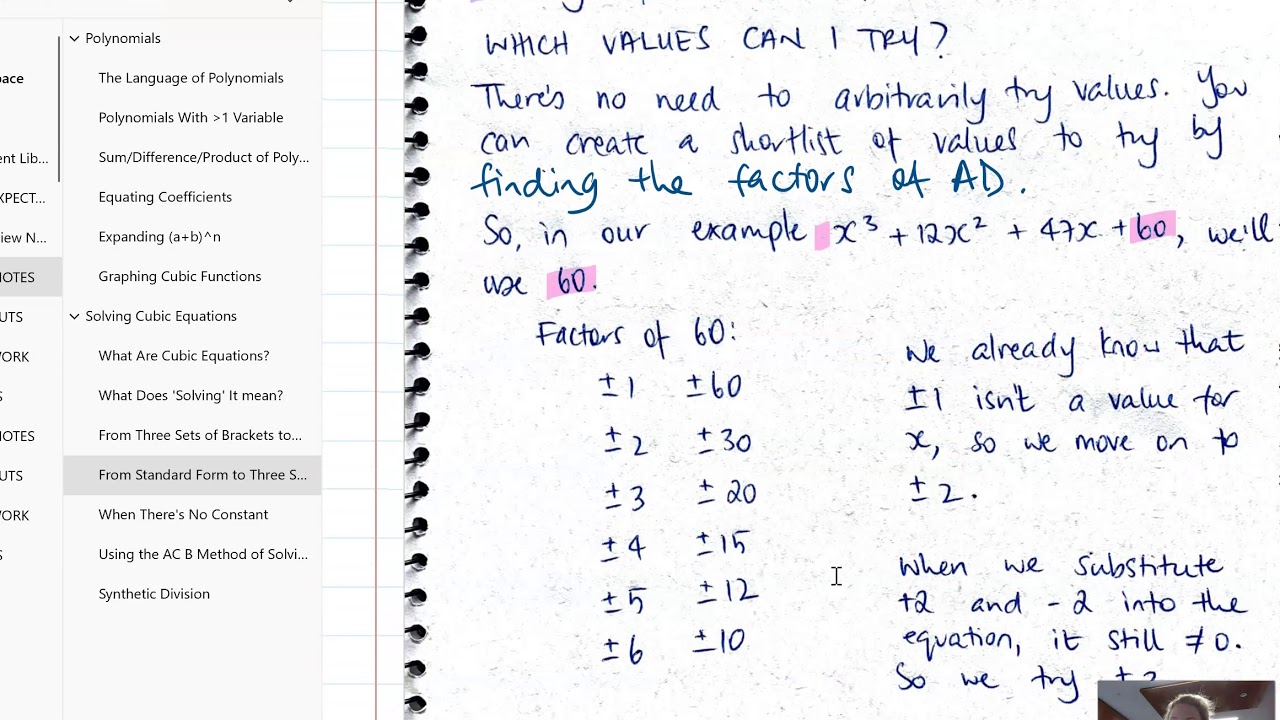 Polynomials
The Language of Polynomials
Polynomials With >1 Variable
Sum/Difference/Product of Poly...
Equating Coefficients
Expanding (a+b)^n
Graphing Cubic Functions
Solving Cubic Equations
What Are Cubic Equations?
What Does 'Solving' It mean?
From Three Sets of Brackets to...
From Standard Form to Three S...
When There's No Constant
Using the AC B Method of Solvi...
Synthetic Division
pace
ent Lib...
XPECT...
iew N...
NOTES
UTS
WORK
S
NOTES
UTS
WORK
S
WHICH VALUES CAN I TRY?
There's no need to arbitrarily try values. You
can create a shortlist of values to try by
finding the factors of AD.
So, in our example x³ + 12x² + 47x + 60, we'll
use 60.
Factors of 60:
±1 ±60
±2 ±30
±3 ±20
±4 ±15
±5 ±12
±6 ±10
We already know that
±1 isn't a value for
x, so we move on to
±2.
When we substitute
+2 and -2 into the
equation, it still ≠0.
So we try